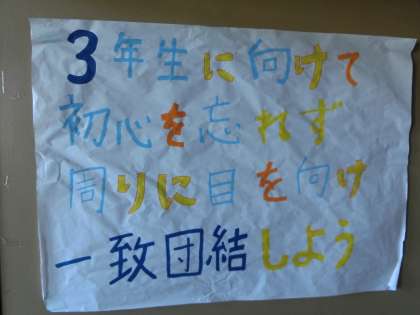 3年生に向けて
初心を忘れず
周りに目を向け
一致団結しよう